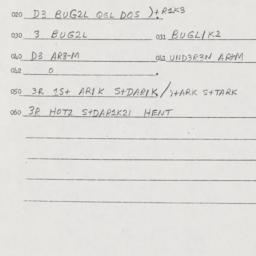 020 D3 BUG2L OGL DOS )+R1K3
030 3 BUG2L 031 BUGL/K2
040 D3 AR3-M 041 UND3R3N AR+M
042 0 .
050 3R 1S+ AR1K S+DAR1K/)+ARK S+TARK
060 3R HOT2 S+DAR1K21 HENT